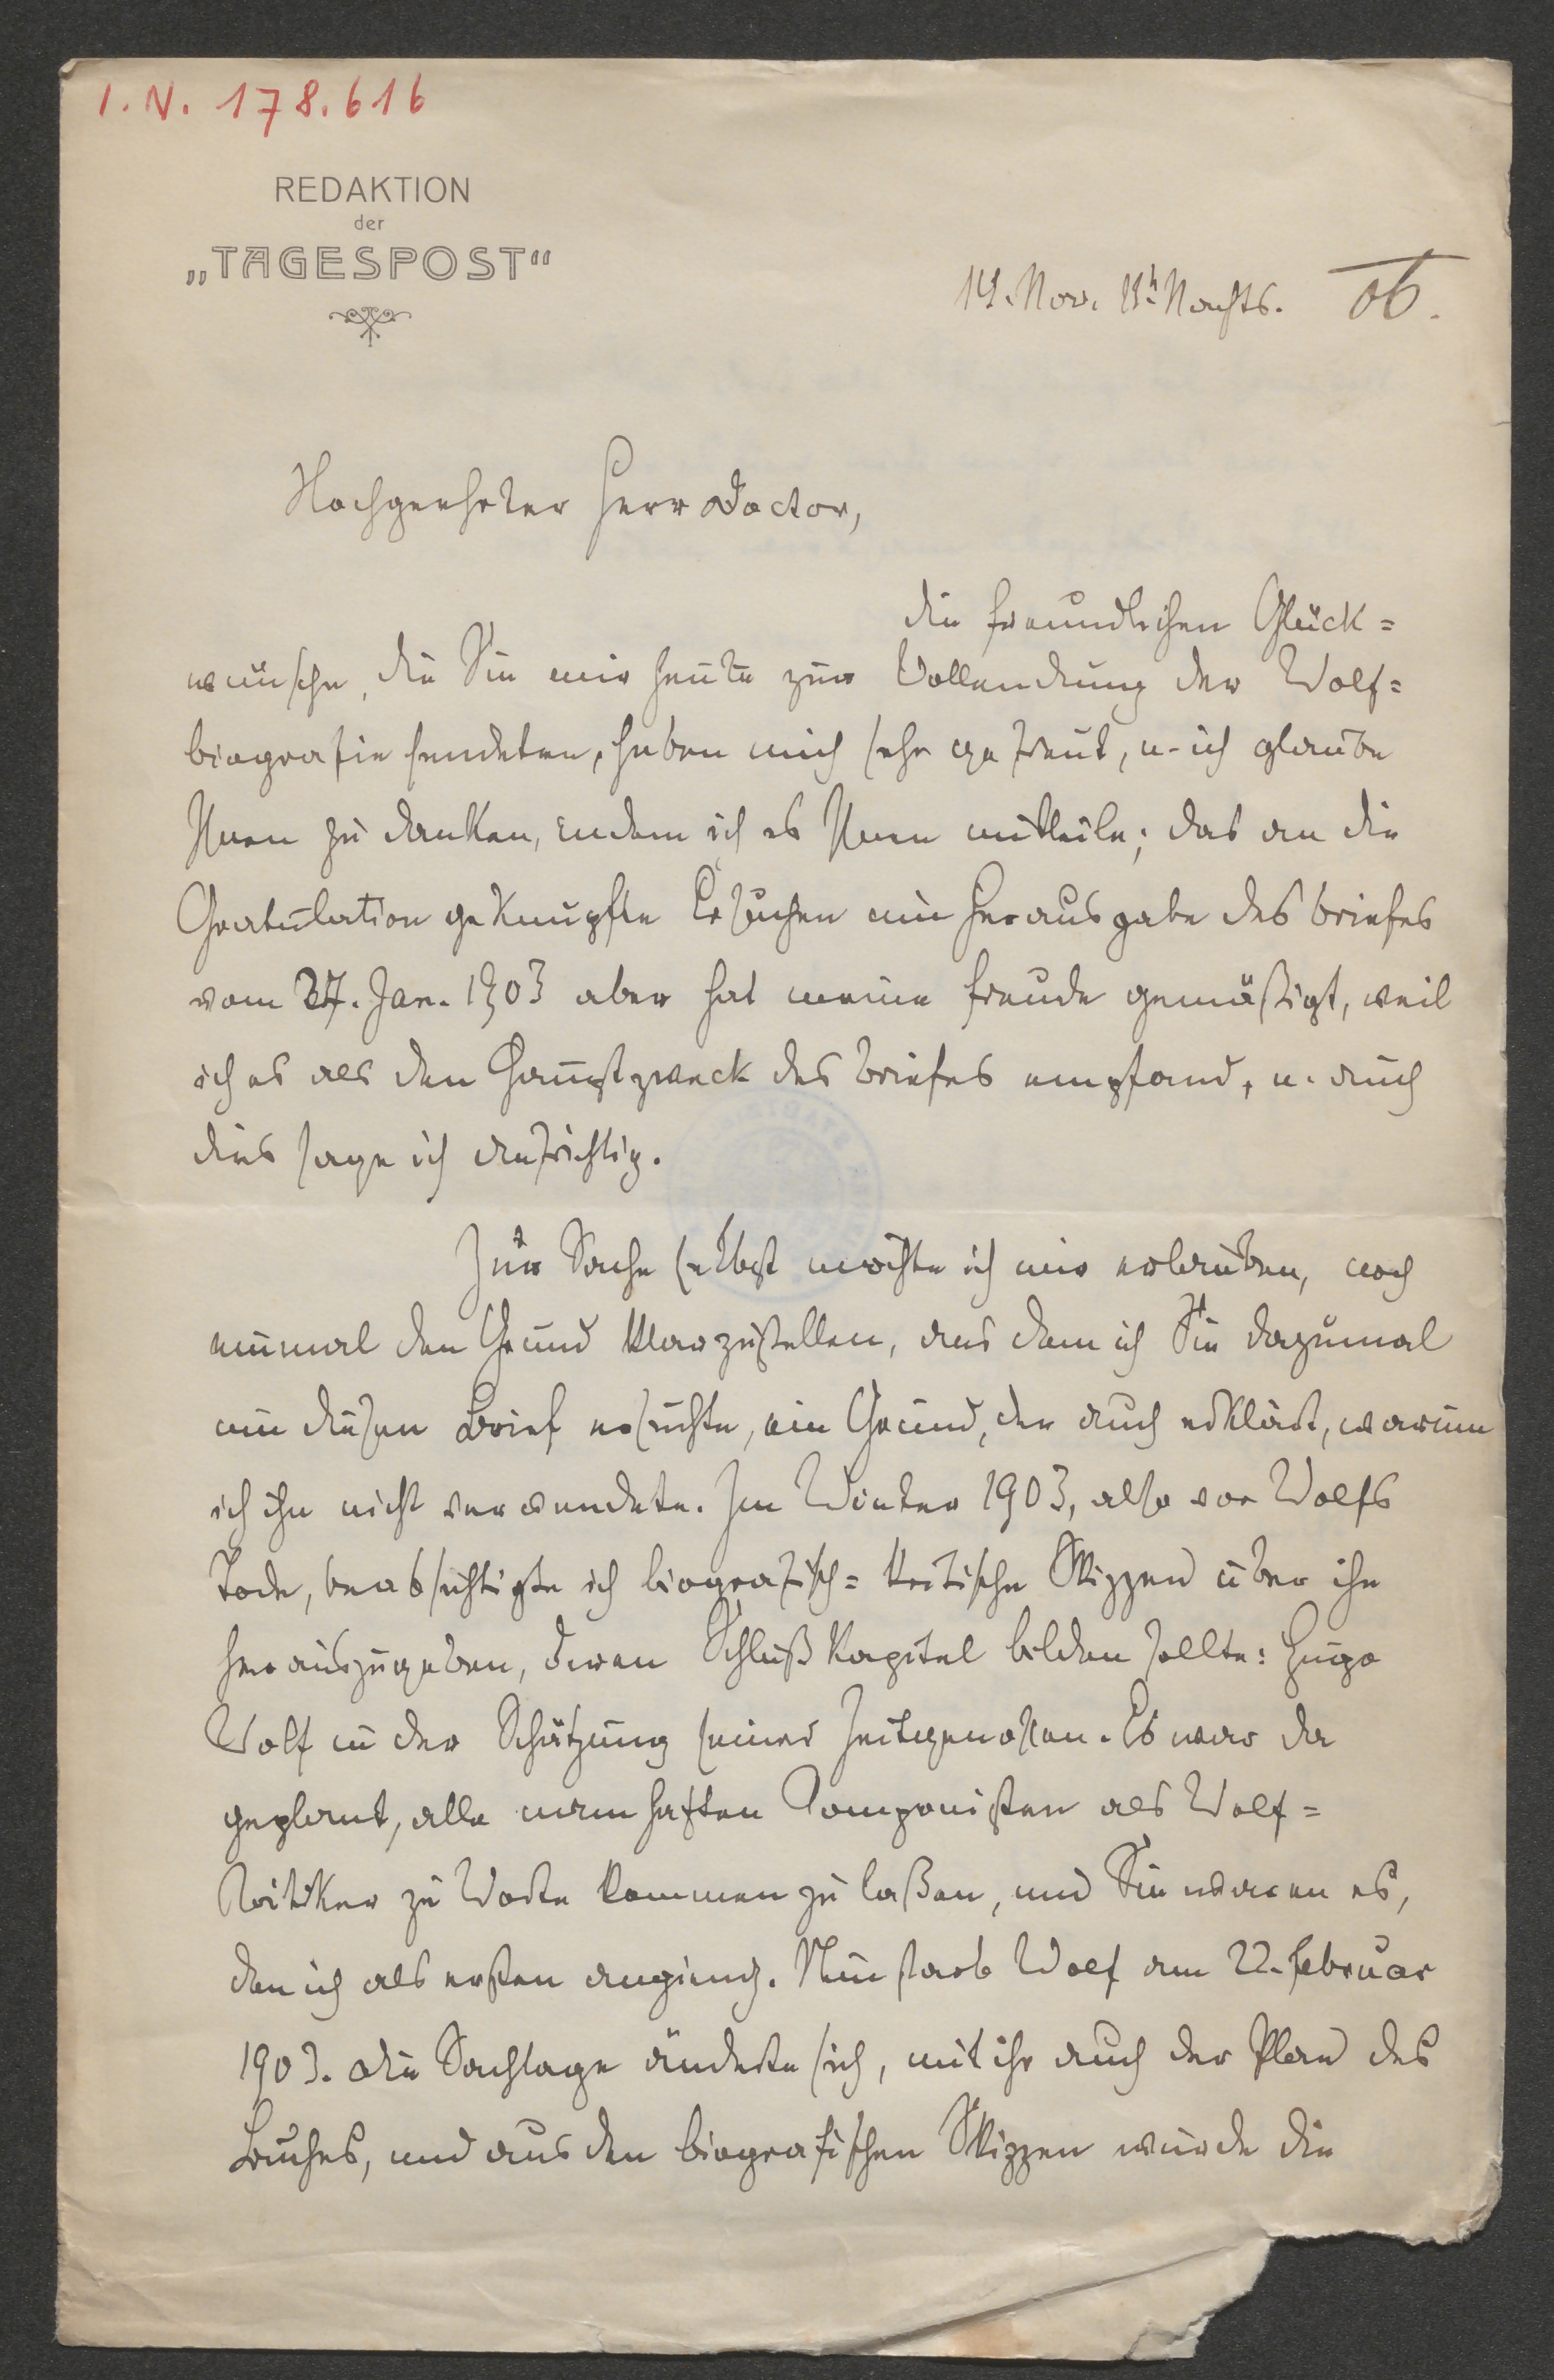 I. N. 178.616
REDAKTION
der
„TAGESPOST“
14. Nov. 11h Nachts. 06.
Hochgeehrter Herr Doctor,
die freundlichen Glück=
wünsche, die Sie mir heute zur Vollendung der Wolf=
biografie sendeten, haben mich sehr gefreut, u. ich glaube
Ihnen zu danken, indem ich es Ihnen mitteile; das an die
Gratulation geknüpfte Ersuchen um Herausgabe des Briefes
vom 27. Jan. 1903 aber hat meine Freude gemäßigt, weil
ich es als den Hauptzweck des Briefes empfand, u. auch
dies sage ich aufrichtig.
Zur Sache selbst möchte ich mir erlauben, noch
einmal den Grund klarzustellen, aus dem ich Sie dazumal
um diesen Brief ersuchte, ein Grund, der auch erklärt, warum
ich ihn nicht verwendete. Im Winter 1903, also vor Wolfs
Tode, beabsichtigte ich biografisch= kritische Skizzen über ihn
herauszugeben, deren Schlußkapitel bilden sollte: Hugo
Wolf in der Schätzung seiner Zeitgenossen. Es war da
geplant, alle namhaften Componisten als Wolf=
Kritiker zu Worte kommen zu laßen, und Sie waren es,
den ich als ersten anging. Nun starb Wolf am 22. Februar
1903. Die Sachlage änderte sich, mit ihr auch der Plan des
Buches, und aus den biografischen Skizzen wurde die